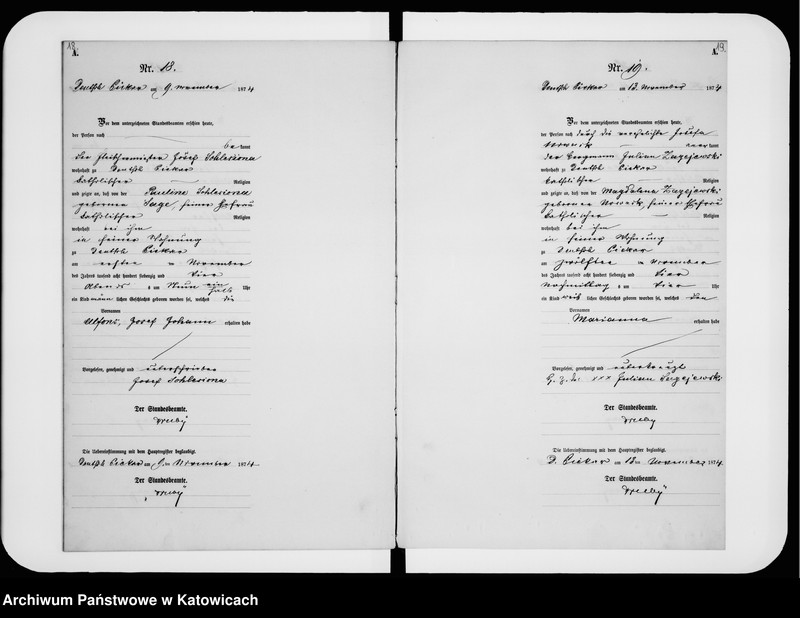 18.
A.
Nr. 18.
Deutsch Piekar am 9. November 1874
Vor dem unterzeichneten Standesbeamten erschien heute,
der Person nach
bekannt
der Fleischermeister Josef Schlesiona
wohnhaft zu Deutsch Piekar
katholischer Religion
und zeigte an, daß von der Pauline Schlesiona
geborenen, seiner Ehefrau
katholischer Religion
wohnhaft bei ihm
in seiner Wohnung
zu Deutsch Piekar
am November
des Jahres tausend acht hundert siebenzig und vier
Abends um Neun ein halb Uhr
ein Kind männlichen Geschlechts geboren worden sei, welches die
Vornamen
Alfons, Josef Johann erhalten habe
Vorgelesen, genehmigt und unterschrieben
Josef Schlesiona
Der Standesbeamte.
Die Uebereinstimmung mit dem Hauptregister beglaubigt.
Deutsch Piekar am 9. November 1874
Der Standesbeamte.
19.
A.
Nr. 19.
Deutsch Piekar am 13. November 1874
Vor dem unterzeichneten Standesbeamten erschien heute,
der Person nach durch die verehelichte Josefa
Nowak anerkannt
der Bergmann Julian Zagajewski
wohnhaft zu Deutsch Piekar
katholischer Religion
und zeigte an, daß von der Magdalena Zagajewski
geborenen Nowak, seiner Ehefrau
katholischer Religion
wohnhaft bei ihm
in seiner Wohnung
zu Deutsch Piekar
am zwölften November
des Jahres tausend acht hundert siebenzig und vier
Nachmittag um vier Uhr
ein Kind weiblichen Geschlechts geboren worden sei, welches den
Vornamen
Marianna erhalten habe
Vorgelesen, genehmigt und unterkreuzt
xxx Julian Zagajewski
Der Standesbeamte.
Die Uebereinstimmung mit dem Hauptregister beglaubigt.
D. Piekar am 13. November 1874
Der Standesbeamte.
Archiwum Państwowe w Katowicach